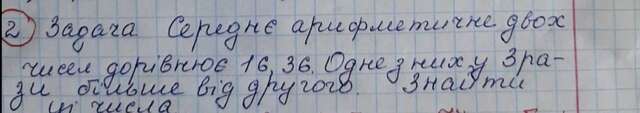 2 Задача Середнє арифметичне двох
чисел дорівнює 16,36. Одне з них у 3 ра-
зи більше від другого. Знайти
ці числа